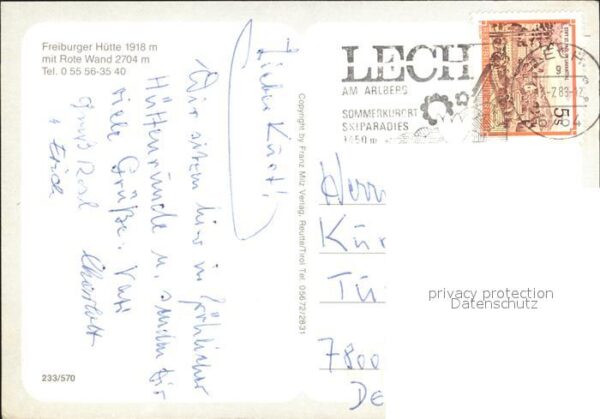 Freiburger Hütte 1918 m
mit Rote Wand 2704 m
Tel. 0 55 56-35 40
Lieber Kurt!
Wir sitzen hier in fröhlicher
Hüttenrunde u. senden Dir
viele Grüße.
Gruß
Erich
233/570
Copyright by Franz Milz Verlag, Reutte/Tirol Tel. 05672/2831
LECH
AM ARLBERG
SOMMERKURORT
SKIPARADIES
1450 m
5S
Herr
Kur
Tü
7800
De
privacy protection
Datenschutz